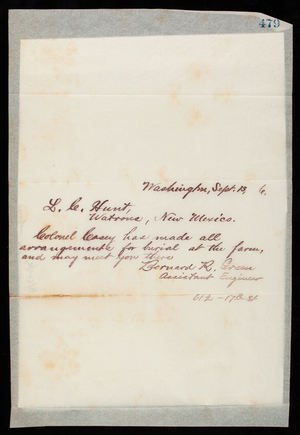 479
Washington, Sept. 13, 6.
L. C. Hunt,
Watrous, New Mexico.
Colonel Casey has made all
arrangements for burial at the farm,
and may meet you there
Bernard R. Green
Assistant Engineer